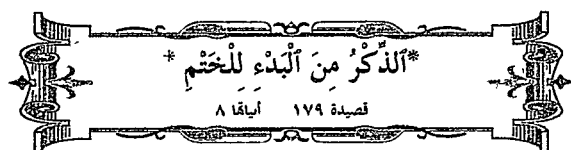 *اَلذِّكْرُ مِنَ اَلْبَدْءِ لِلْخَتْمِ*
قصيدة ١٧٩ أبياتها ٨